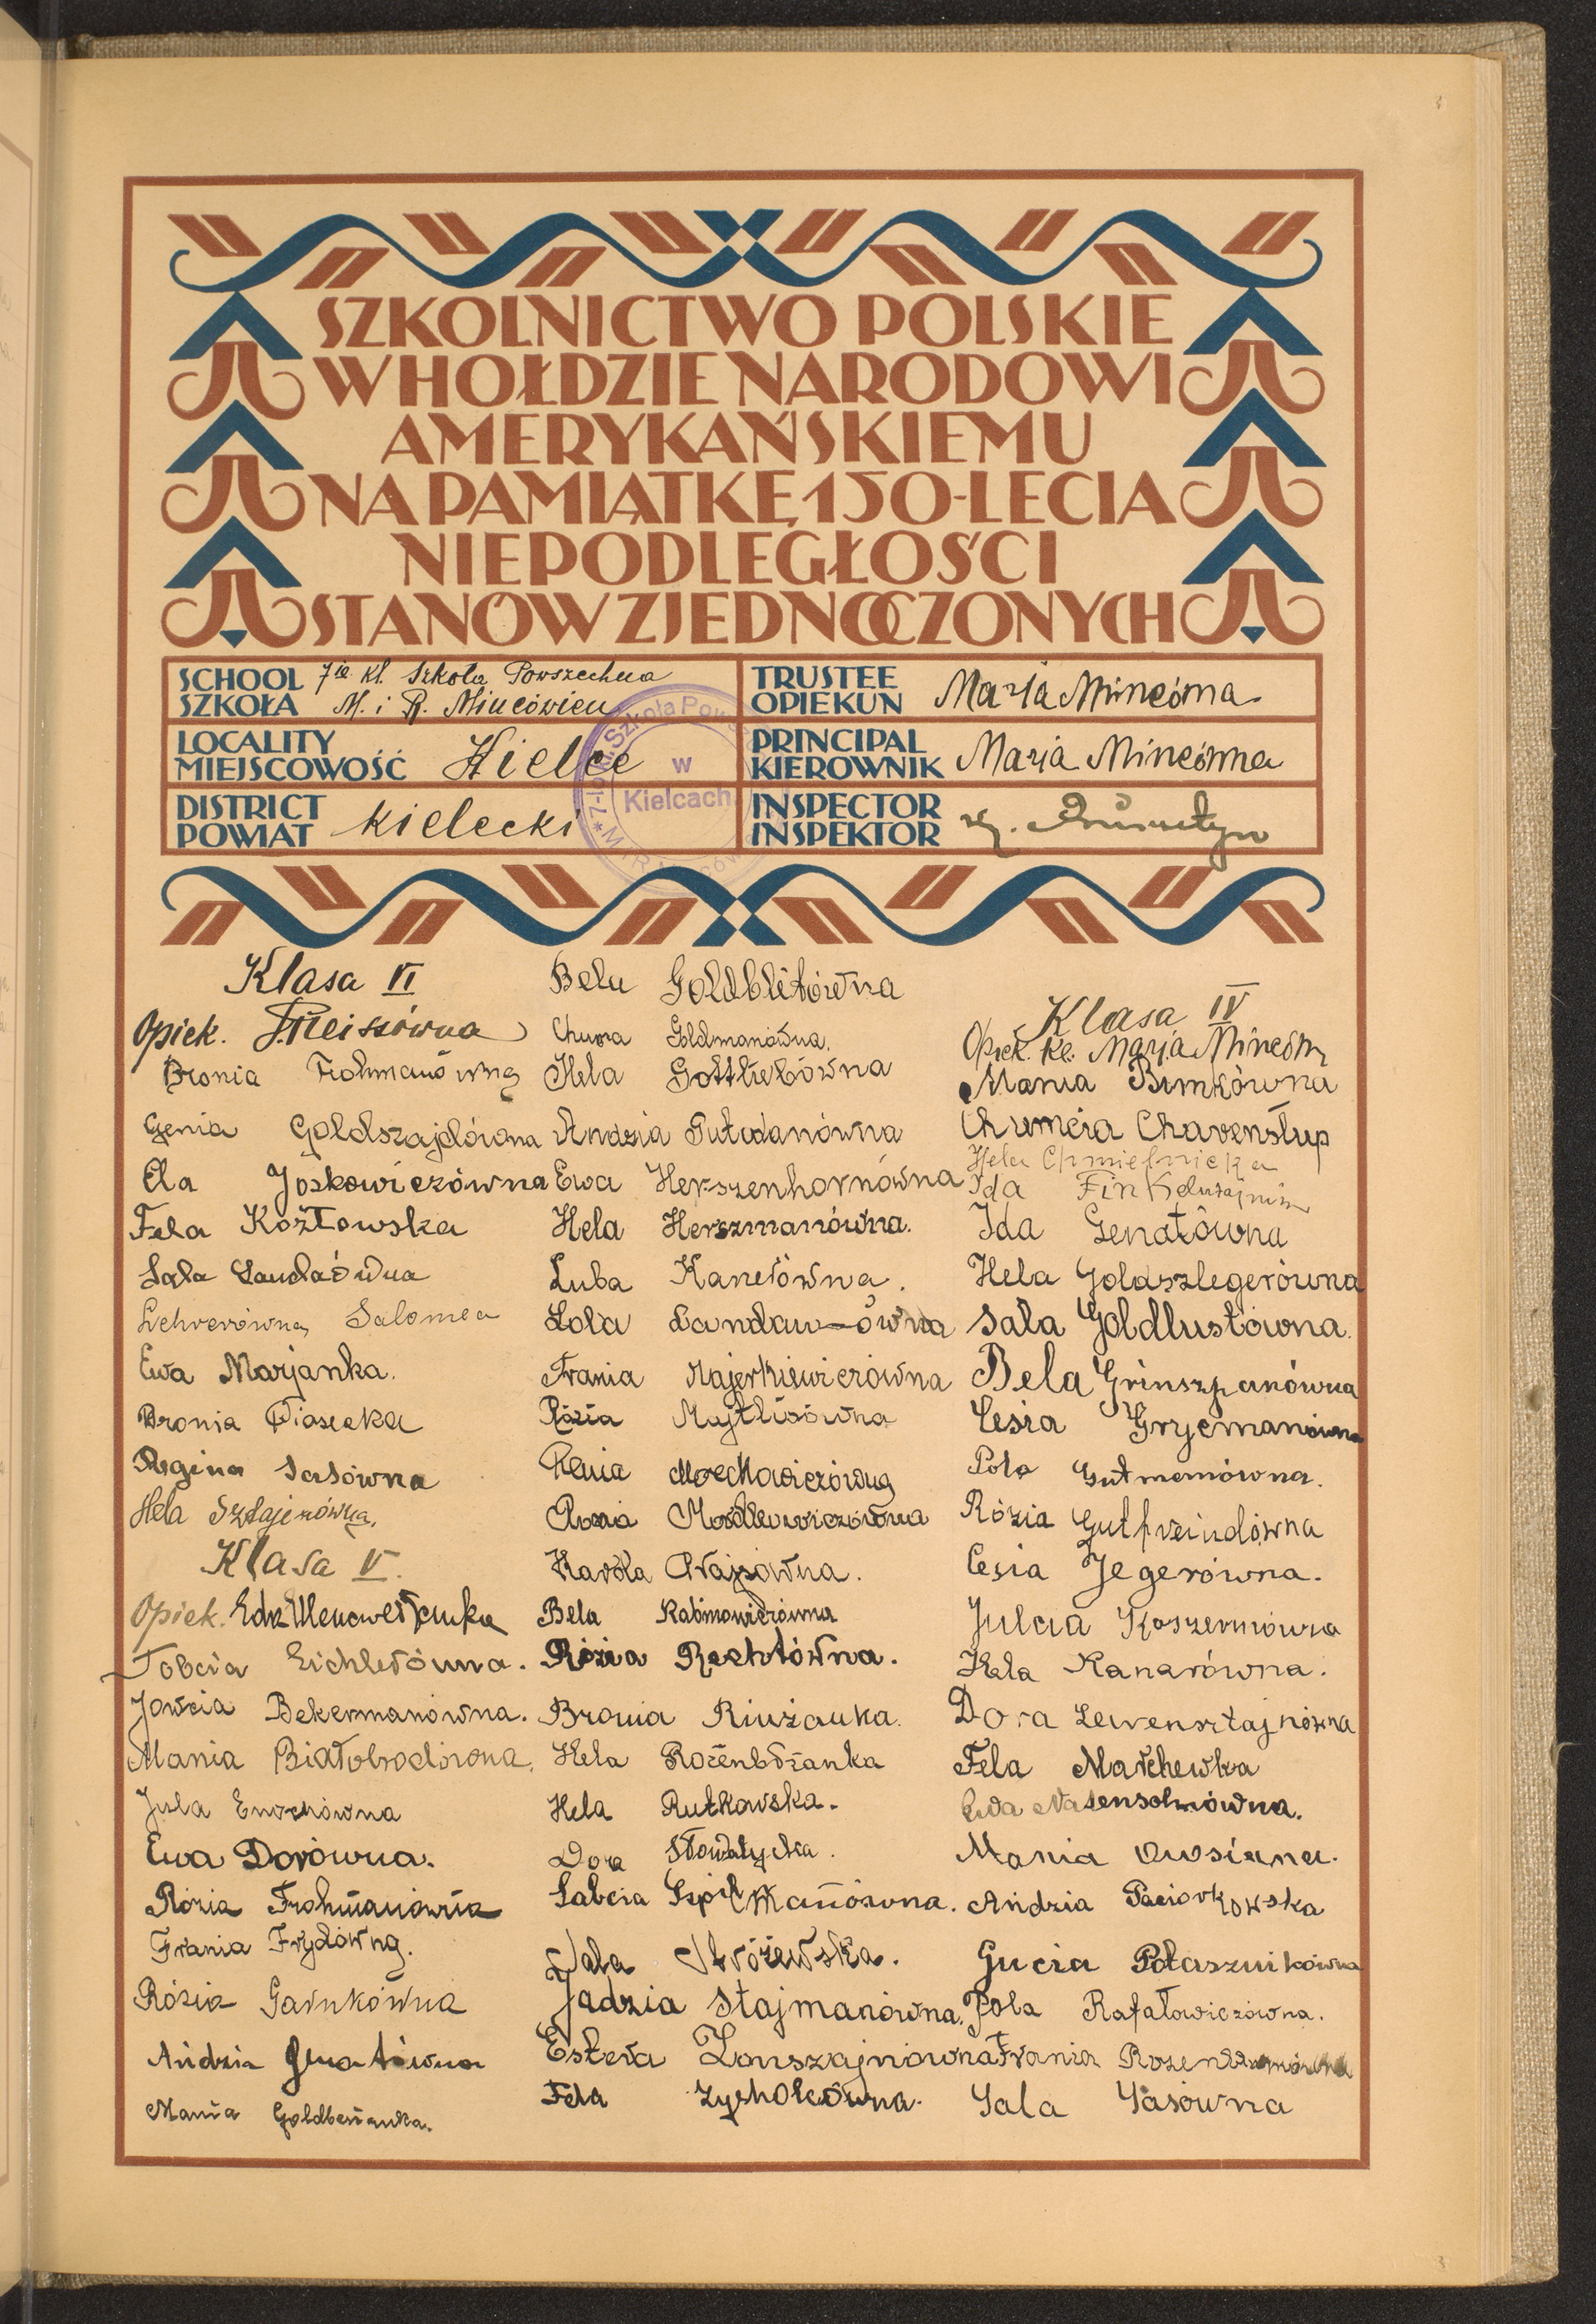 SZKOLNICTWO POLSKIE
W HOŁDZIE NARODOWI
AMERYKAŃSKIEMU
NA PAMIĄTKĘ 150-LECIA
NIEPODLEGŁOŚCI
STANÓW ZJEDNOCZONYCH
SCHOOL 7io kl. Szkoła Powszechna
SZKOŁA M. i R. Mincówien
TRUSTEE
OPIEKUN Marja Mincówna
LOCALITY
MIEJSCOWOŚĆ Kielce
PRINCIPAL
KIEROWNIK Marja Mincówna
DISTRICT
POWIAT kielecki
INSPECTOR
INSPEKTOR
w
Kielcach
Klasa VI
Opiek. Preissówna
Bronia Frohmanówna
Genia Goldszajdówna
Ela Joskowiczówna
Fela Kozłowska
Sala Landaówna
Lehrerówna Salomea
Ewa Marjanka.
Bronia Piasecka
Regina Sasówna
Hela Sztajerówna.
Klasa V.
Opiek.
Tobcia Eichlerówna.
Jowcia Bekermanówna.
Mania Białobrodówna.
Jula Enochówna
Ewa Dorówna.
Rózia Frohmanówna
Frania Frydówna.
Rózia Garnkówna
Andzia Genatówna
Mania Goldberżanka.
Bela Goldblitówna
Chuma Goldmanówna.
Hela Gottliebówna
Andzia Gutwdanówna
Ewa Herszenhornówna
Hela Herszmanówna.
Luba Kanerówna.
Lola Landau-ówna
Frania Majerkiewiczówna
Rózia Majtlisówna
Renia Moszkowiczówna
Rózia
Karola Prajsówna.
Bela Rabinowiczówna
Rózia Rechtówna.
Bronia Rinżanka.
Hela Rozenblżanka
Hela Rutkowska.
Dora Słowatycka.
Sabcia Szpilmanówna.
Sala Strożewska.
Jadzia Stajmanówna.
Estera Zonszajnówna
Fela Zycholcówna.
Klasa IV
Opiek. kl. Marja Mincówn
Mania Bimkówna
Chumcia Chavenstup
Hela Chmielnicka
Ida Finkelusztajnów
Ida Genatówna
Hela Goldszlegerówna
Sala Goldlustówna.
Bela Grinszpanówna
Cesia Grycmanówna
Pola Gutmanówna.
Rózia Gutfreindówna
Cesia Jegerówna.
Julcia Koszernówna
Hela Kanarówna.
Dora Lewensztajnówna
Fela Marchewka
Ewa Natensohnówna.
Mania Owsiana.
Andzia Paciorkowska
Gucia Potasznikówna
Pola Rafałowiczówna.
Frania
Sala Sasówna